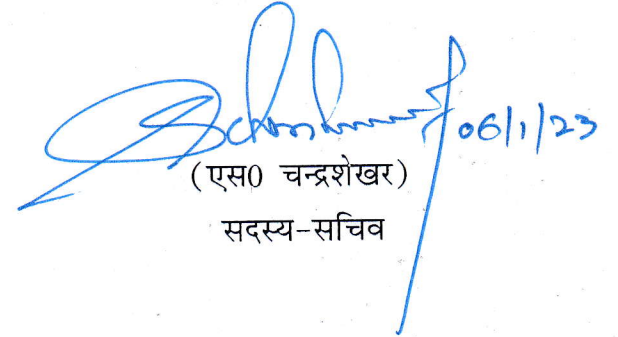 06/1/23
(एस0 चन्द्रशेखर)
सदस्य-सचिव